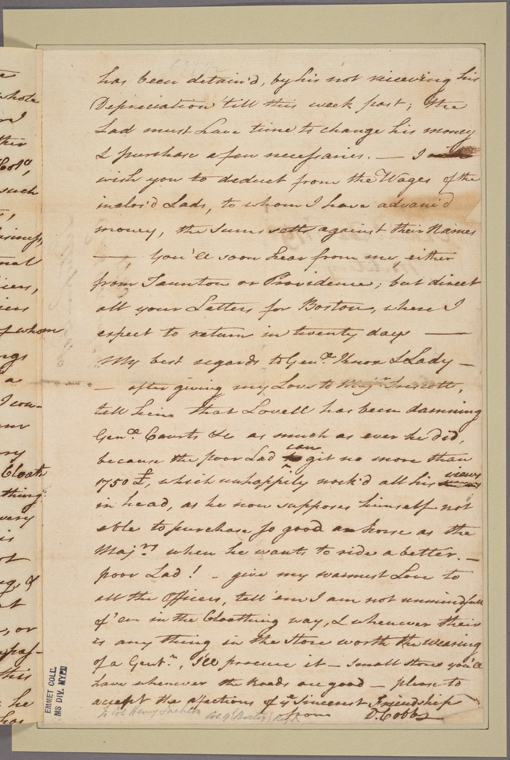 has been detain'd, by his not receiving his
Depreciation 'till this week past; the
Lad must have time to change his money
& purchase a few necessaries. — I
wish you to deduct from the Wages of the
inclos'd Lads, to whom I have advanc'd
money, the sums sett against their Names
— You'll soon hear from me, either
from Taunton or Providence, but direct
all your Letters for Boston, where I
expect to return in twenty days —
My best regards to Genl. Knox & Lady —
— after giving my Love to Majr. Trescott,
tell him that Lovell has been damning
Genl. Courts &c as much as ever he did,
because the poor Lad can git no more than
1750 £, which unhappily nock'd all his views
in head, as he now supposes himself not
able to purchase so good an house as the
Majrs. when he wants to ride a better. —
poor Lad! — give my warmest Love to
all the Officers, tell 'em I am not unmindfull
of 'em in the Cloathing way, & whenever their
is any thing in the Store worth the Wearing
of a Gentn., I'll procure it — small stores you'll
have whenever the Roads are good — please to
accept the affections of yr. Sincerest Friendship
from D. Cobb
To Col. Henry Jackson
EMMET COLL.
MS DIV. NYPL